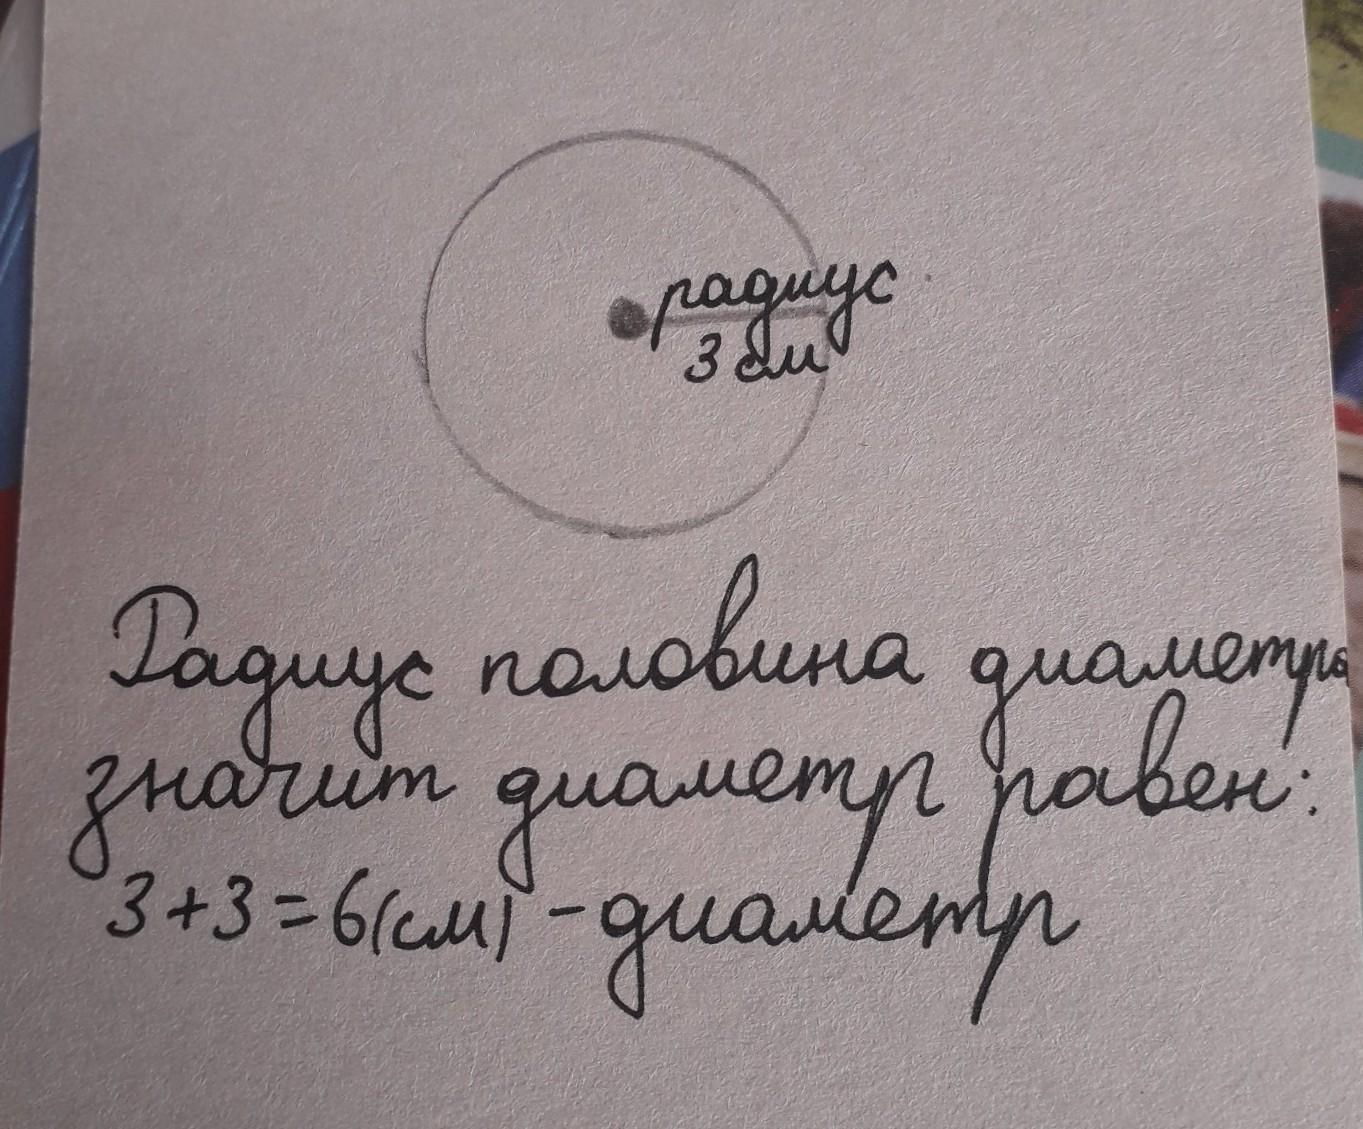 радиус
3 см
Радиус половина диаметра
значит диаметр равен:
3+3=6(см) - диаметр